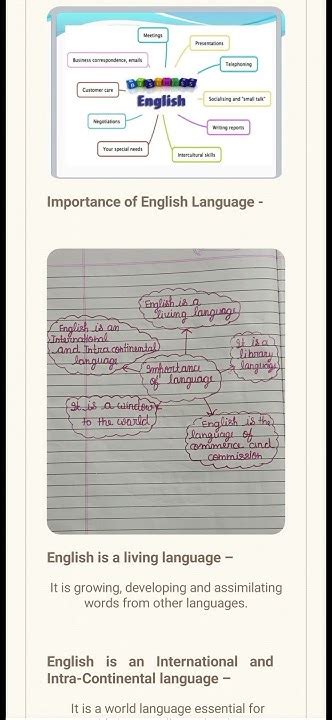 Meetings
Presentations
Business correspondence, emails
Telephoning
Customer care
BUSINESS
English
Socialising and "small talk"
Negotiations
Writing reports
Your special needs
Intercultural skills
Importance of English Language -
English is a
living language
English is an
International
and Intra continental
language
It is a
library
language
Importance
of language
It is a window
to the world
English is the
language of
commerce and
commission
English is a living language –
It is growing, developing and assimilating
words from other languages.
English is an International and
Intra-Continental language –
It is a world language essential for